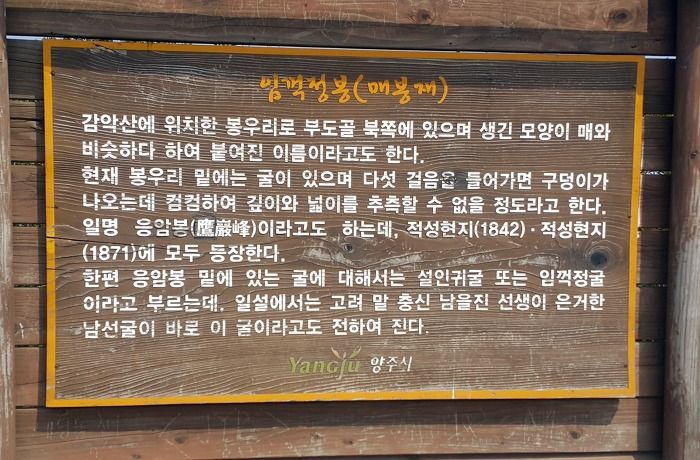 임꺽정봉(매봉재)
감악산에 위치한 봉우리로 부도골 북쪽에 있으며 생긴 모양이 매와
비슷하다 하여 붙여진 이름이라고도 한다.
현재 봉우리 밑에는 굴이 있으며 다섯 걸음을 들어가면 구덩이가
나오는데 컴컴하여 깊이와 넓이를 추측할 수 없을 정도라고 한다.
일명 응암봉(鷹巖峰)이라고도 하는데, 적성현지(1842)·적성현지
(1871)에 모두 등장한다.
한편 응암봉 밑에 있는 굴에 대해서는 설인귀굴 또는 임꺽정굴
이라고 부르는데, 일설에서는 고려 말 충신 남을진 선생이 은거한
남선굴이 바로 이 굴이라고도 전하여 진다.
Yangju 양주시